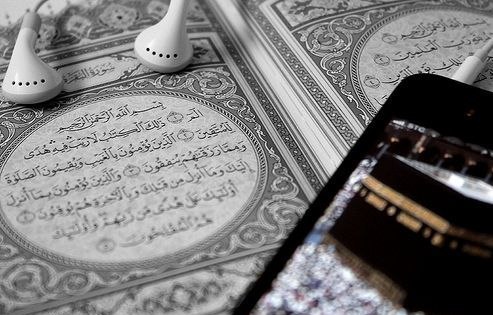 سُورَةُ البَقَرَةِ
بِسْمِ اللَّهِ الرَّحْمَٰنِ الرَّحِيمِ
الٓمٓ ١ ذَٰلِكَ الْكِتَٰبُ لَا رَيْبَ ۛ فِيهِ ۛ هُدًى
لِّلْمُتَّقِينَ ٢ الَّذِينَ يُؤْمِنُونَ بِالْغَيْبِ وَيُقِيمُونَ الصَّلَوٰةَ
وَمِمَّا رَزَقْنَٰهُمْ يُنفِقُونَ ٣ وَالَّذِينَ يُؤْمِنُونَ بِمَآ أُنزِلَ
إِلَيْكَ وَمَآ أُنزِلَ مِن قَبْلِكَ وَبِالْءَاخِرَةِ هُمْ يُوقِنُونَ ٤
أُو۟لَٰٓئِكَ عَلَىٰ هُدًى مِّن رَّبِّهِمْ ۖ وَأُو۟لَٰٓئِكَ
هُمُ الْمُفْلِحُونَ ٥
STC